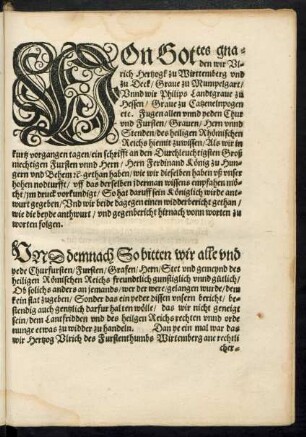 VOn Gottes gna⸗
den wir Vl⸗
rich Hertzogk zu Wirttemberg vnd
zu Deck / Graue zu Mumpelgart /
Vnnd wir Philips Landtgraue zu
Hessen / Graue zu Catzenelnpogen
etc. Fugen allen vnnd yeden Chur
vnd Fursten / Grauen / Hern vnnd
Stenden / des heiligen Rhömischen
Reichs hiemit zuwissen / Als wir in
kurtz vorgangen tagen / ein schrifft an den Durchleuchtigsten Groß
mechtigen Fursten vnnd Hern / Hern Ferdinand König zu Hun⸗
gern vnd Behem ꝛc̄ gethan haben / wie wir dieselben haben vß vnser
hohen nodturfft / vff das derselben yderman wissens empfahen möch⸗
te / im druck vorkundigt / So hat daruff sein Königlich wirde ant⸗
wurt gegeben / Vnd wir beide dagegen einen widderbericht gethan /
wie die beyde anthwurt / vnd gegenbericht hirnach vonn worten zu
worten folgen.
VNd demnach So bitten wir alle vnd
yede Churfursten / Fursten / Grafen / Hern / Stet vnd gemeynd des
heiligen Römischen Reichs freundtlich gunstiglich vnnd gütlich /
Ob solichs anders an jemands / wer der were / gelangen wurde / dem
kein stat zugeben / Sonder das ein yeder dissen vnsern bericht / be⸗
stendig auch gentzlich darfur halten wölle / das wir nicht geneigt
sein / dem Lantfridden vnd des heiligen Reichs rechten vnnd orde
nunge etwas zu widder zu handeln. Dan ye ein mal war das
wir Hertzog Vlrich des Furstenthumbs Wirtemberg ane rechtli
cher⸗